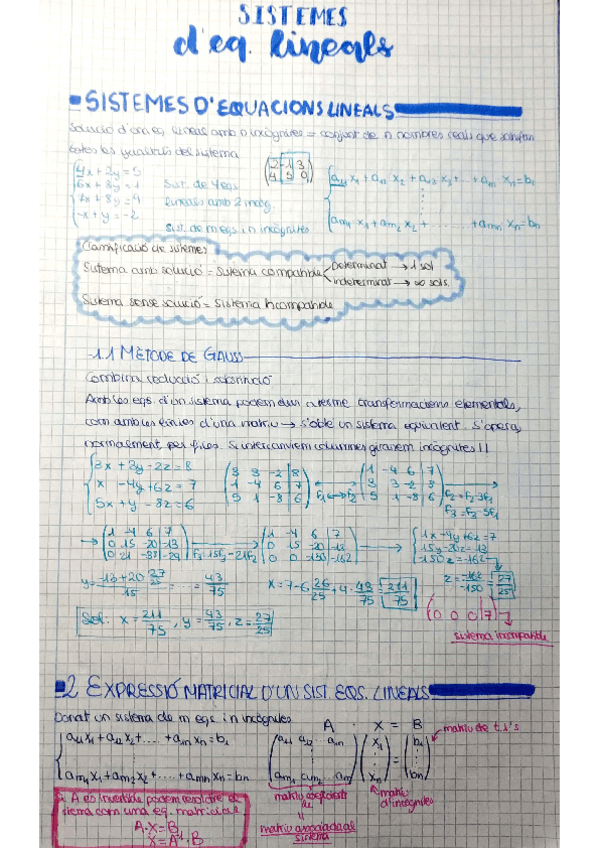 SISTEMES
d'eq. lineals
SISTEMES D'EQUACIONS LINEALS
Solució d'un eq. lineal amb n incògnites = conjunt de n nombres reals que
totes les igualtats del sistema
4x + 2y = 5
6x + 3y = 1 Sist. de 4 eqs.
7x + 8y = 4 lineals amb 2 incòg.
-x + y = -2
Sist. de m eqs i n incògnites
a11 x1 + a12 x2 + ... + an xn = b1
am1 x1 + am2 x2 + ... + amn xn = bn
Classificació de sistemes
Sistema amb solució = Sistema compatible
Determinat → 1 sol
indeterminat → ∞ sols.
Sistema sense solució = Sistema Incompatible
1.1 MÈTODE DE GAUSS
Combina reducció i substitució
Amb les eqs. d'un sistema podem dur a terme transformacions elementals,
com amb les línies d'una matriu → s'obté un sistema equivalent. S'opera,
normalment, per files. Si intercanviem columnes girarem incògnites!!
3x + 3y - 2z = 8
x - 4y + 6z = 7
5x + y - 8z = 6
3 3 -2 | 8
1 -4 6 | 7
5 1 -8 | 6
F1 ↔ F2
1 -4 6 | 7
3 3 -2 | 8
5 1 -8 | 6
F2 = F2 - 3F1
F3 = F3 - 5F1
1 -4 6 | 7
0 15 -20 | -13
0 21 -38 | -29
1 -4 6 | 7
0 15 -20 | -13
0 0 -150 | -162
1x - 4y + 6z = 7
15y - 20z = -13
-150z = -162
y = -13+20 27/25 / 15 = ... = 43/75
z = -162/-150 = 27/25
(0 0 0 | 7)
sistema incompatible
Sol: x = 211/75, y = 43/75, z = 27/25
2 EXPRESSIÓ MATRICIAL D'UN SIST. EQS. LINEALS
Donat un sistema de m eqs. i n incògnites
A · X = B
matriu de t.i's
a11 x1 + a12 x2 + .... + a1n xn = b1
am1 x1 + am2 x2 + .... + amn xn = bn
a11 a12 ... a1n
x1
b1
xn
bn
matriu
d'incògnites
matriu associada al
sistema
Si A és invertible podem resoldre el
sistema com una eq. matricial
A·X = B
X = A⁻¹·B